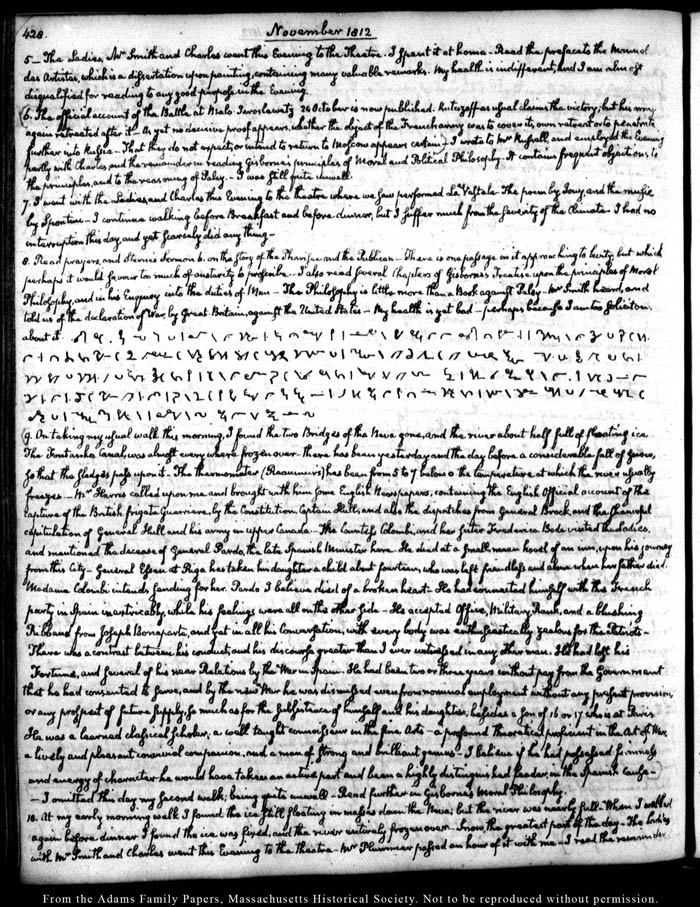 428.
November 1812
5_ The Ladies, Mr Smith and Charles went this Evening to the Theatre. I spent it at home_ Read the preface to the Manuel
des Artistes, which is a dissertation upon painting, containing many valuable remarks. My health is indifferent, and I am almost
disqualified for reading to any good purpose in the Evening.
6. The official account of the Battle at Malo-Jaroslawetz 24 October is now published. Kutuzoff as usual claims the victory; but his army
again retreated after it_ As yet no decisive proof appears, whether the object of the French army was to cover its own retreat or to penetrate
further into Russia_ That they do not expect, or intend to return to Moscow appears certain) I wrote to Mr Russell, and employed the Evening
partly with Charles, and the remainder in reading Gisborne's principles of Moral and Political Philosophy. It contains frequent objections, to
the principles, and to the reasoning of Paley_ I was still quite unwell.
7. I went with the Ladies and Charles this Evening to the theatre where we saw performed La Vestale. The poem by Jouy, and the music
by Spontini_ I continue walking before Breakfast and before dinner, but I suffer much from the severity of the Climate_ I had no
interruption this day, and yet scarcely did any thing_
8. Read prayers, and Sterne's Sermon 6. on the story of the Pharisee and the Publican_ There is one passage in it approaching to levity, but which
perhaps it would savour too much of austerity to proscribe. I also read several Chapters of Gisborne's Treatise upon the principles of Moral
Philosophy, and in his Enquiry into the duties of Man_ The Philosophy is little more than a Book against Paley_ Mr Smith heard, and
told us of the declaration of War, by Great Britain, against the United States_ My health is yet bad_ perhaps because I am too solicitous
about it.
9. On taking my usual walk this morning, I found the two Bridges of the Neva gone, and the river about half full of floating ice.
The Fontanka Canal, was almost every where frozen over_ There has been yesterday and the day before a considerable fall of snow,
so that the sledges pass upon it_ The thermometer (Reaumur's) has been from 5 to 7 below 0 the temperature at which the river usually
freezes_ Mr Harris called upon me and brought with him some English Newspapers, containing the English Official account of the
capture of the British frigate Guerriere, by the Constitution, Captain Hull, and also the dispatches from General Brock, and the shameful
capitulation of General Hull and his army in upper Canada_ The Countess Colombi, and her sister Frederica Bode visited the Ladies,
and mentioned the decease of General Pardo, the late Spanish Minister here. He died at a small mean hovel of an inn, upon his journey
from this City_ General Essen at Riga has taken his daughter a child about fourteen, who was left friendless and alone where her father died.
Madame Colombi intends sending for her. Pardo I believe died of a broken heart_ He had connected himself with the French
party in Spain inextricably, while his feelings were all on the other side_ He accepted Office, Military Rank, and a blushing
Ribband from Joseph Bonaparte, and yet in all his Conversation, with every body was enthusiastically zealous for the Patriots_
There was a contrast between his conduct, and his discourse greater than I ever witnessed in any other man. He had lost his
Fortune, and several of his near Relations by the War in Spain. He had been two or three years without pay from the Government
that he had consented to serve, and by the new War he was dismissed even from nominal employment without any present provision,
or any prospect of future supply, so much as for the subsistence of himself and his daughter, besides a son of 16 or 17 who is at Paris
He was a learned classical scholar, a well taught connoisseur in the fine Arts_ a profound theoretical proficient in the Art of War,
a lively and pleasant convivial companion, and a man of strong and brilliant genius_ I believe if he had possessed firmness
and energy of character he would have taken an active part and been a highly distinguished leader, in the Spanish cause_
_ I omitted this day my second walk, being quite unwell_ Read further in Gisborne's Moral Philosophy.
10. At my early morning walk I found the ice still floating in masses down the Neva; but the river was nearly full_ When I walked
again before dinner I found the ice was fixed, and the river entirely frozen over_ Snow the greatest part of the day_ The Ladies
with Mr Smith and Charles went this Evening to the theatre_ Mr Plummer passed an hour of it with me_ I read the remainder
From the Adams Family Papers, Massachusetts Historical Society. Not to be reproduced without permission.